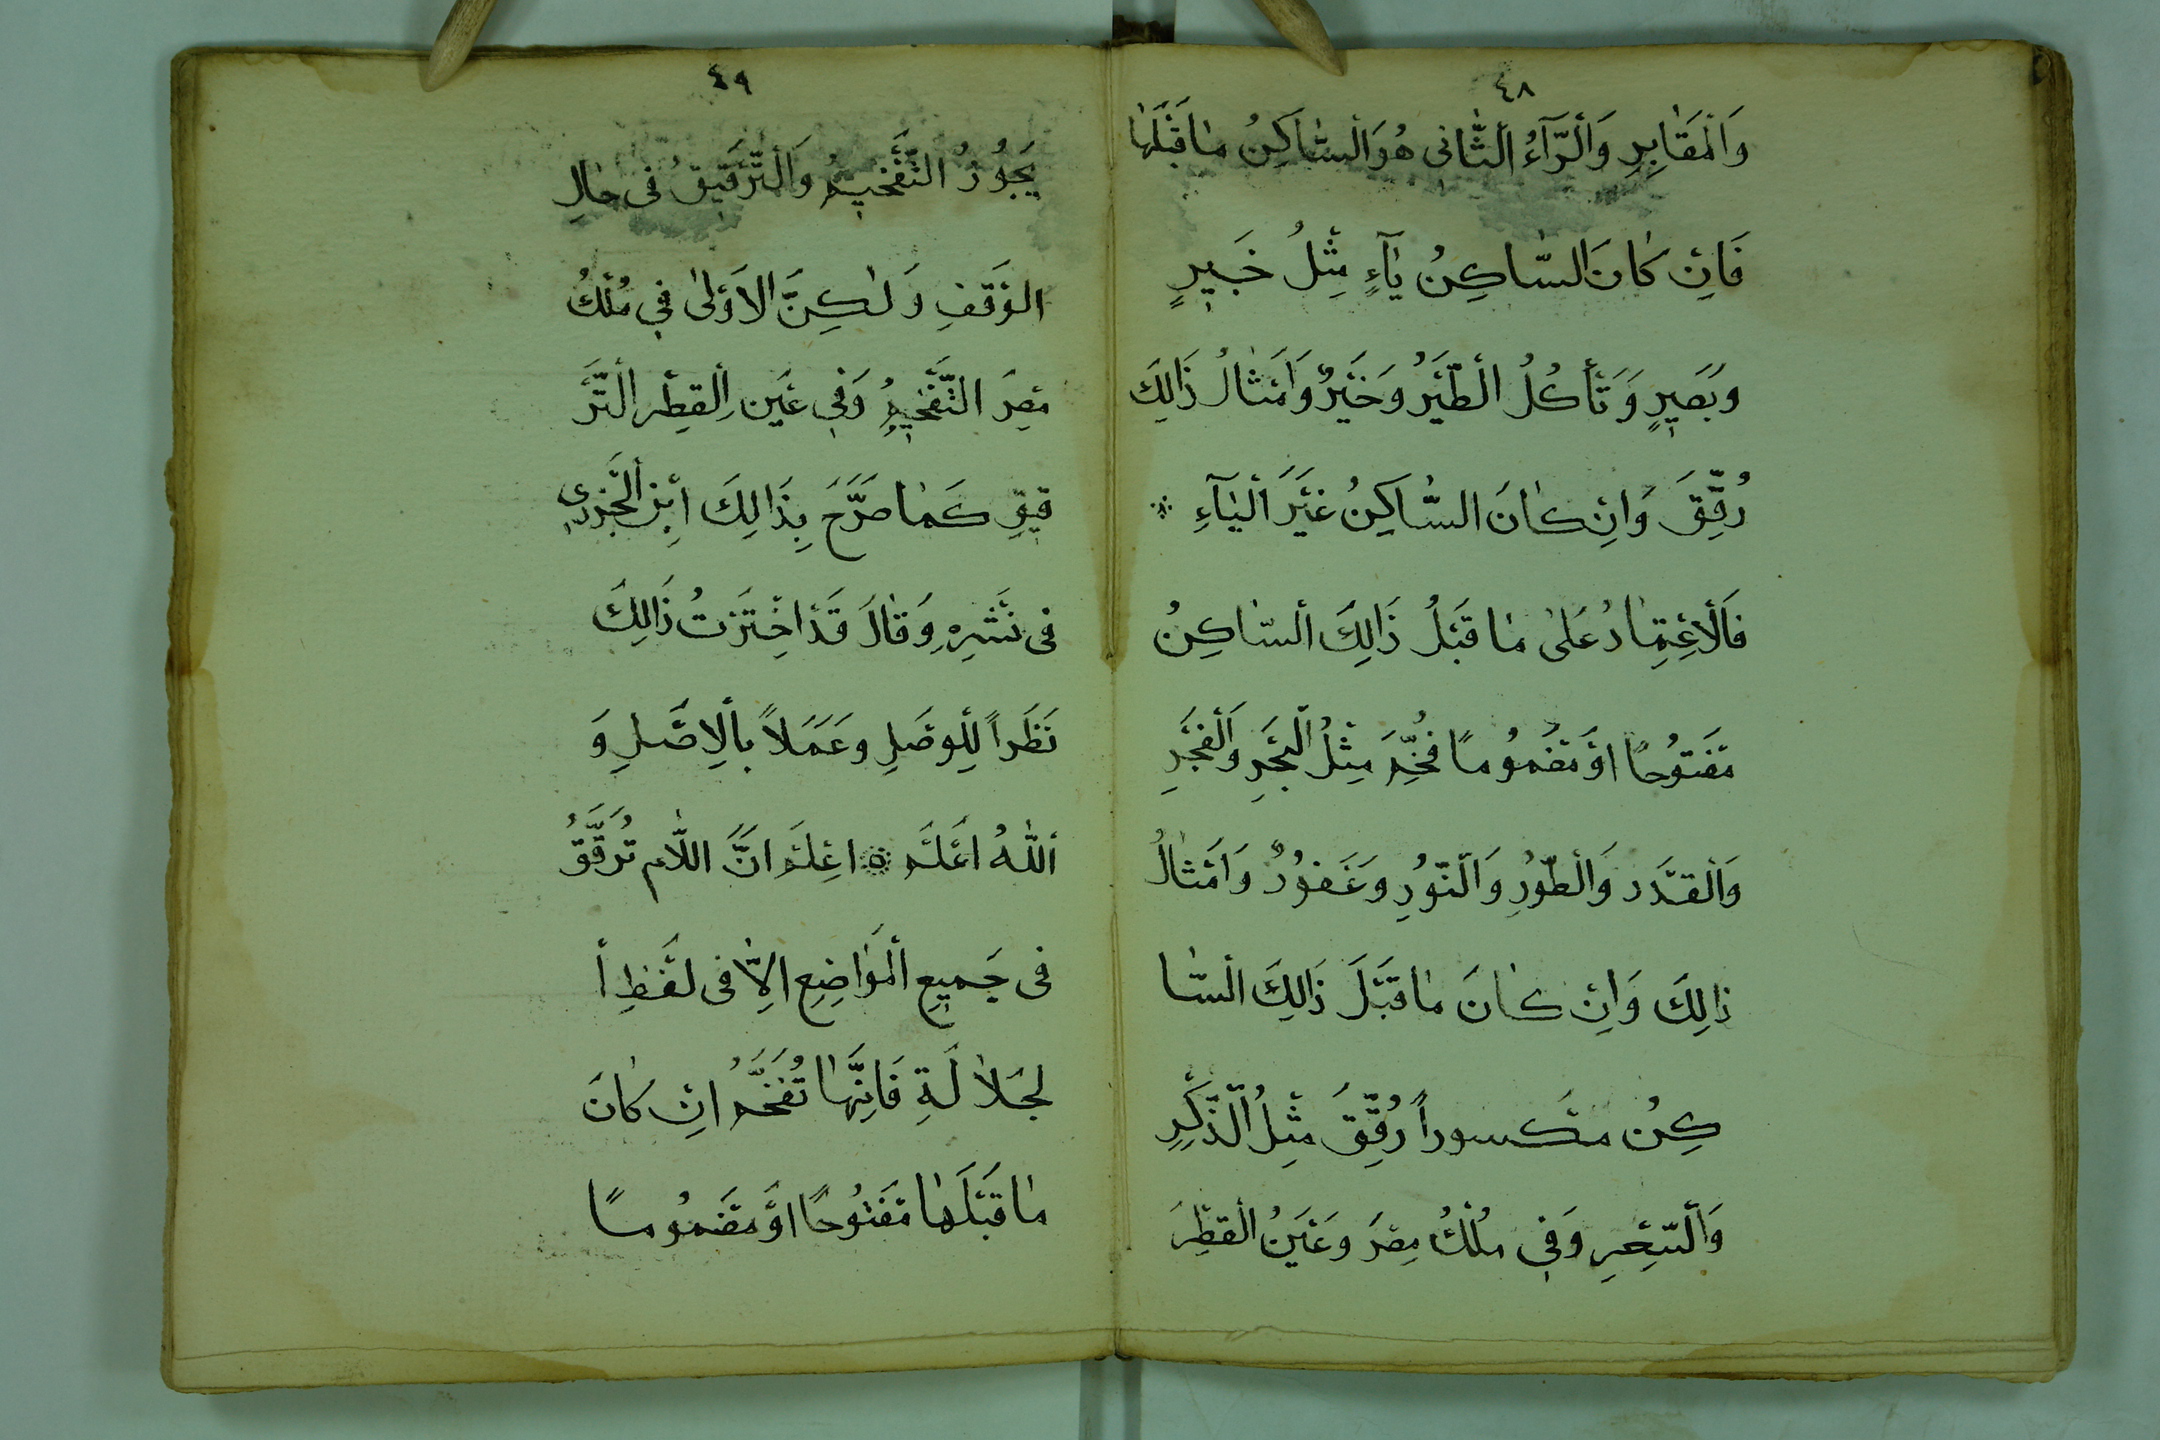 ٤٨
وَالْمَقَابِرِ وَالرَّآءُ الثَّانِى هُوَ السَّاكِنُ مَا قَبْلَهَا
فَاِنْ كَانَ السَّاكِنُ يَآءٍ مِثْلُ خَبِيرٍ
وَبَصِيرٍ وَتَأْكُلُ الطَّيْرُ وَخَيْرٌ وَاَمْثَالُ ذَالِكَ
رُقِّقَ وَاِنْ كَانَ السَّاكِنُ غَيْرَ الْيَآءِ
فَالْاِعْتِمَادُ عَلٰى مَا قَبْلُ ذَالِكَ السَّاكِنُ
مَفْتُوحًا اَوْ مَضْمُومًا فُخِّمَ مِثْلُ الْبَحْرِ وَالْفَجْرِ
وَالْقَدْرِ وَالطُّورِ وَالنُّورِ وَغَفُورٌ وَاَمْثَالُ
ذَالِكَ وَاِنْ كَانَ مَا قَبْلَ ذَالِكَ السَّا
كِنُ مَكْسُوراً رُقِّقَ مِثْلُ الذِّكْرِ
وَالسِّحْرِ وَفِى مُلْكُ مِصْرَ وَعَيْنُ الْقِطْرَ
٤٩
يَجُوزُ التَّفْخِيمُ وَالتَّرْقِيقُ فِى حَالِ
الْوَقْفِ وَلٰكِنَّ الْاَوْلٰى فِى مُلْكُ
مِصْرَ التَّفْخِيمُ وَفِى عَيْنِ الْقِطْرِ التَّرْ
قِيقِ كَمَا صَرَّحَ بِذَالِكَ اِبْنِ الْجَزَرِى
فِى نَشْرِهِ وَقَالَ قَدْ اخْتَرْتُ ذَالِكَ
نَظَراً لِلْوَصْلِ وَعَمَلاً بِالْاَصْلِ وَ
اللّٰهُ اَعْلَمُ اِعْلَمْ اَنَّ اللَّام تُرَقَّقُ
فِى جَمِيعِ الْمَوَاضِعِ اِلَّا فِى لَفْظِ أ
لجَلَالَةِ فَاِنَّهَا تُفَخَّمُ اِنْ كَانَ
مَا قَبْلَهَا مَفْتُوحًا اَوْ مَضْمُومًا